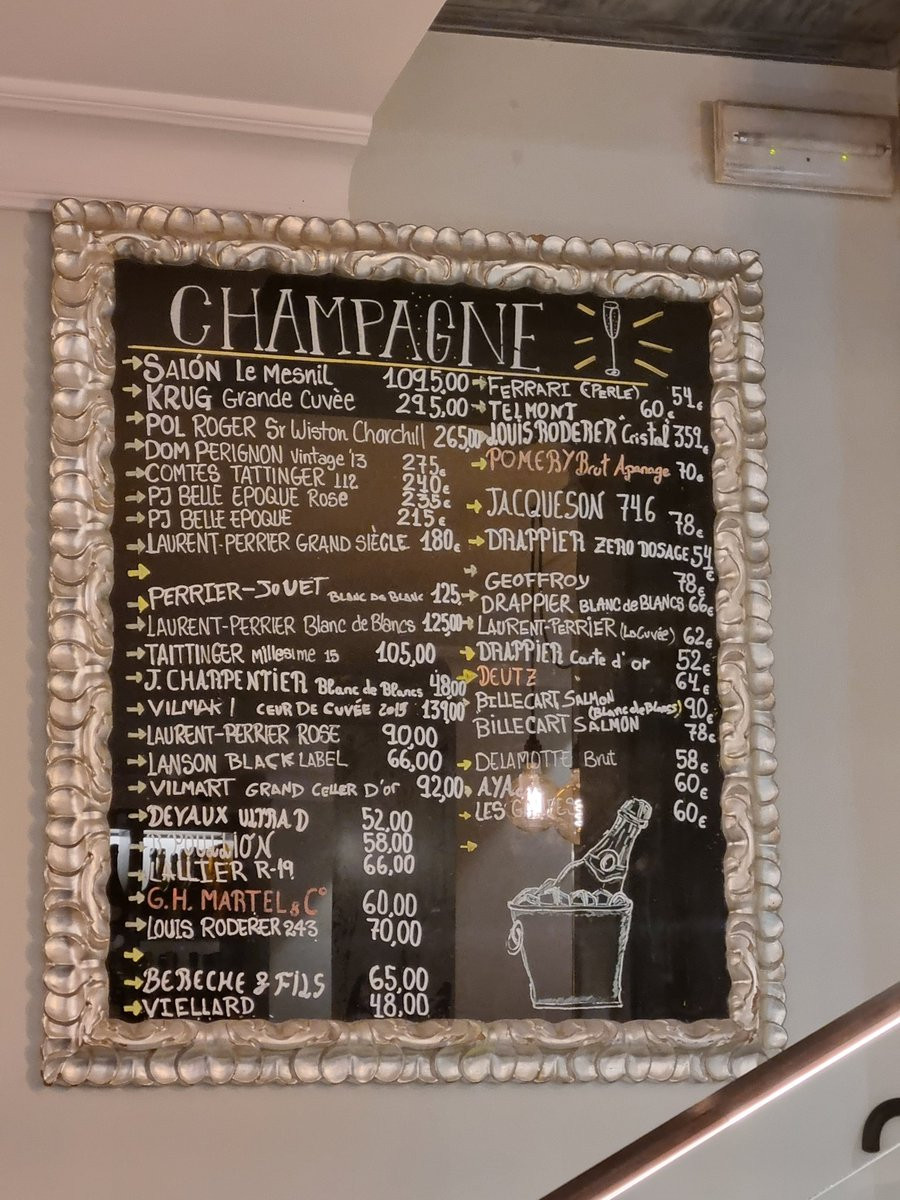 CHAMPAGNE
SALÓN Le Mesnil 1095,00
KRUG Grande Cuvèe 295,00
POL ROGER Sr Wiston Chorchill 265,00
DOM PERIGNON Vintage '13 275€
COMTES TATTINGER '12 240€
PJ BELLE EPOQUE Rose 235€
PJ BELLE EPOQUE 215€
LAURENT-PERRIER GRAND SIÈCLE 180€
PERRIER-JOUET BLANC DE BLANC 125
LAURENT-PERRIER Blanc de Blancs 125,00
TAITTINGER Millesime 15 105,00
J. CHARPENTIER Blanc de Blancs 48,00
VILMAK! CEUR DE CUVÉE 2015 139,00
LAURENT-PERRIER ROSE 90,00
LANSON BLACK LABEL 66,00
VILMART GRAND CELLER D'or 92,00
DEVAUX ULTRA D 52,00
58,00
LALLIER R-19 66,00
G.H. MARTEL & Cº 60,00
LOUIS RODERER 243 70,00
BERECHE & FILS 65,00
VIELLARD 48,00
FERRARI (PERLE) 54€
TELMONT 60€
LOUIS RODERER Cristal 359€
POMERY Brut Apanage 70€
JACQUESON 746 78€
DRAPPIER ZERO DOSAGE 54€
GEOFFROY 78€
DRAPPIER BLANC de BLANCS 66€
LAURENT-PERRIER (La Cuvée) 62€
DRAPPIER Carte d'or 52€
DEUTZ 64€
BILLECART SALMON (Blanc de Blancs) 90€
BILLECART SALMON 78€
DELAMOTTE Brut 58€
AYALA 60€
LES 60€